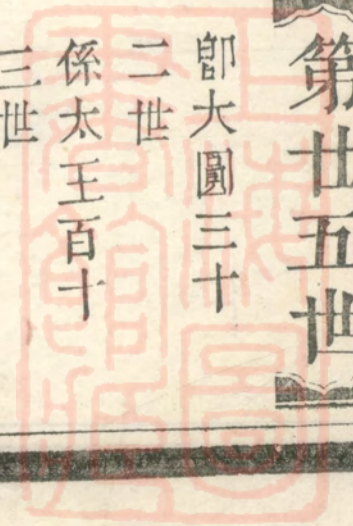 第廿五世
卽大圓三十
二世
係太王百十
三世